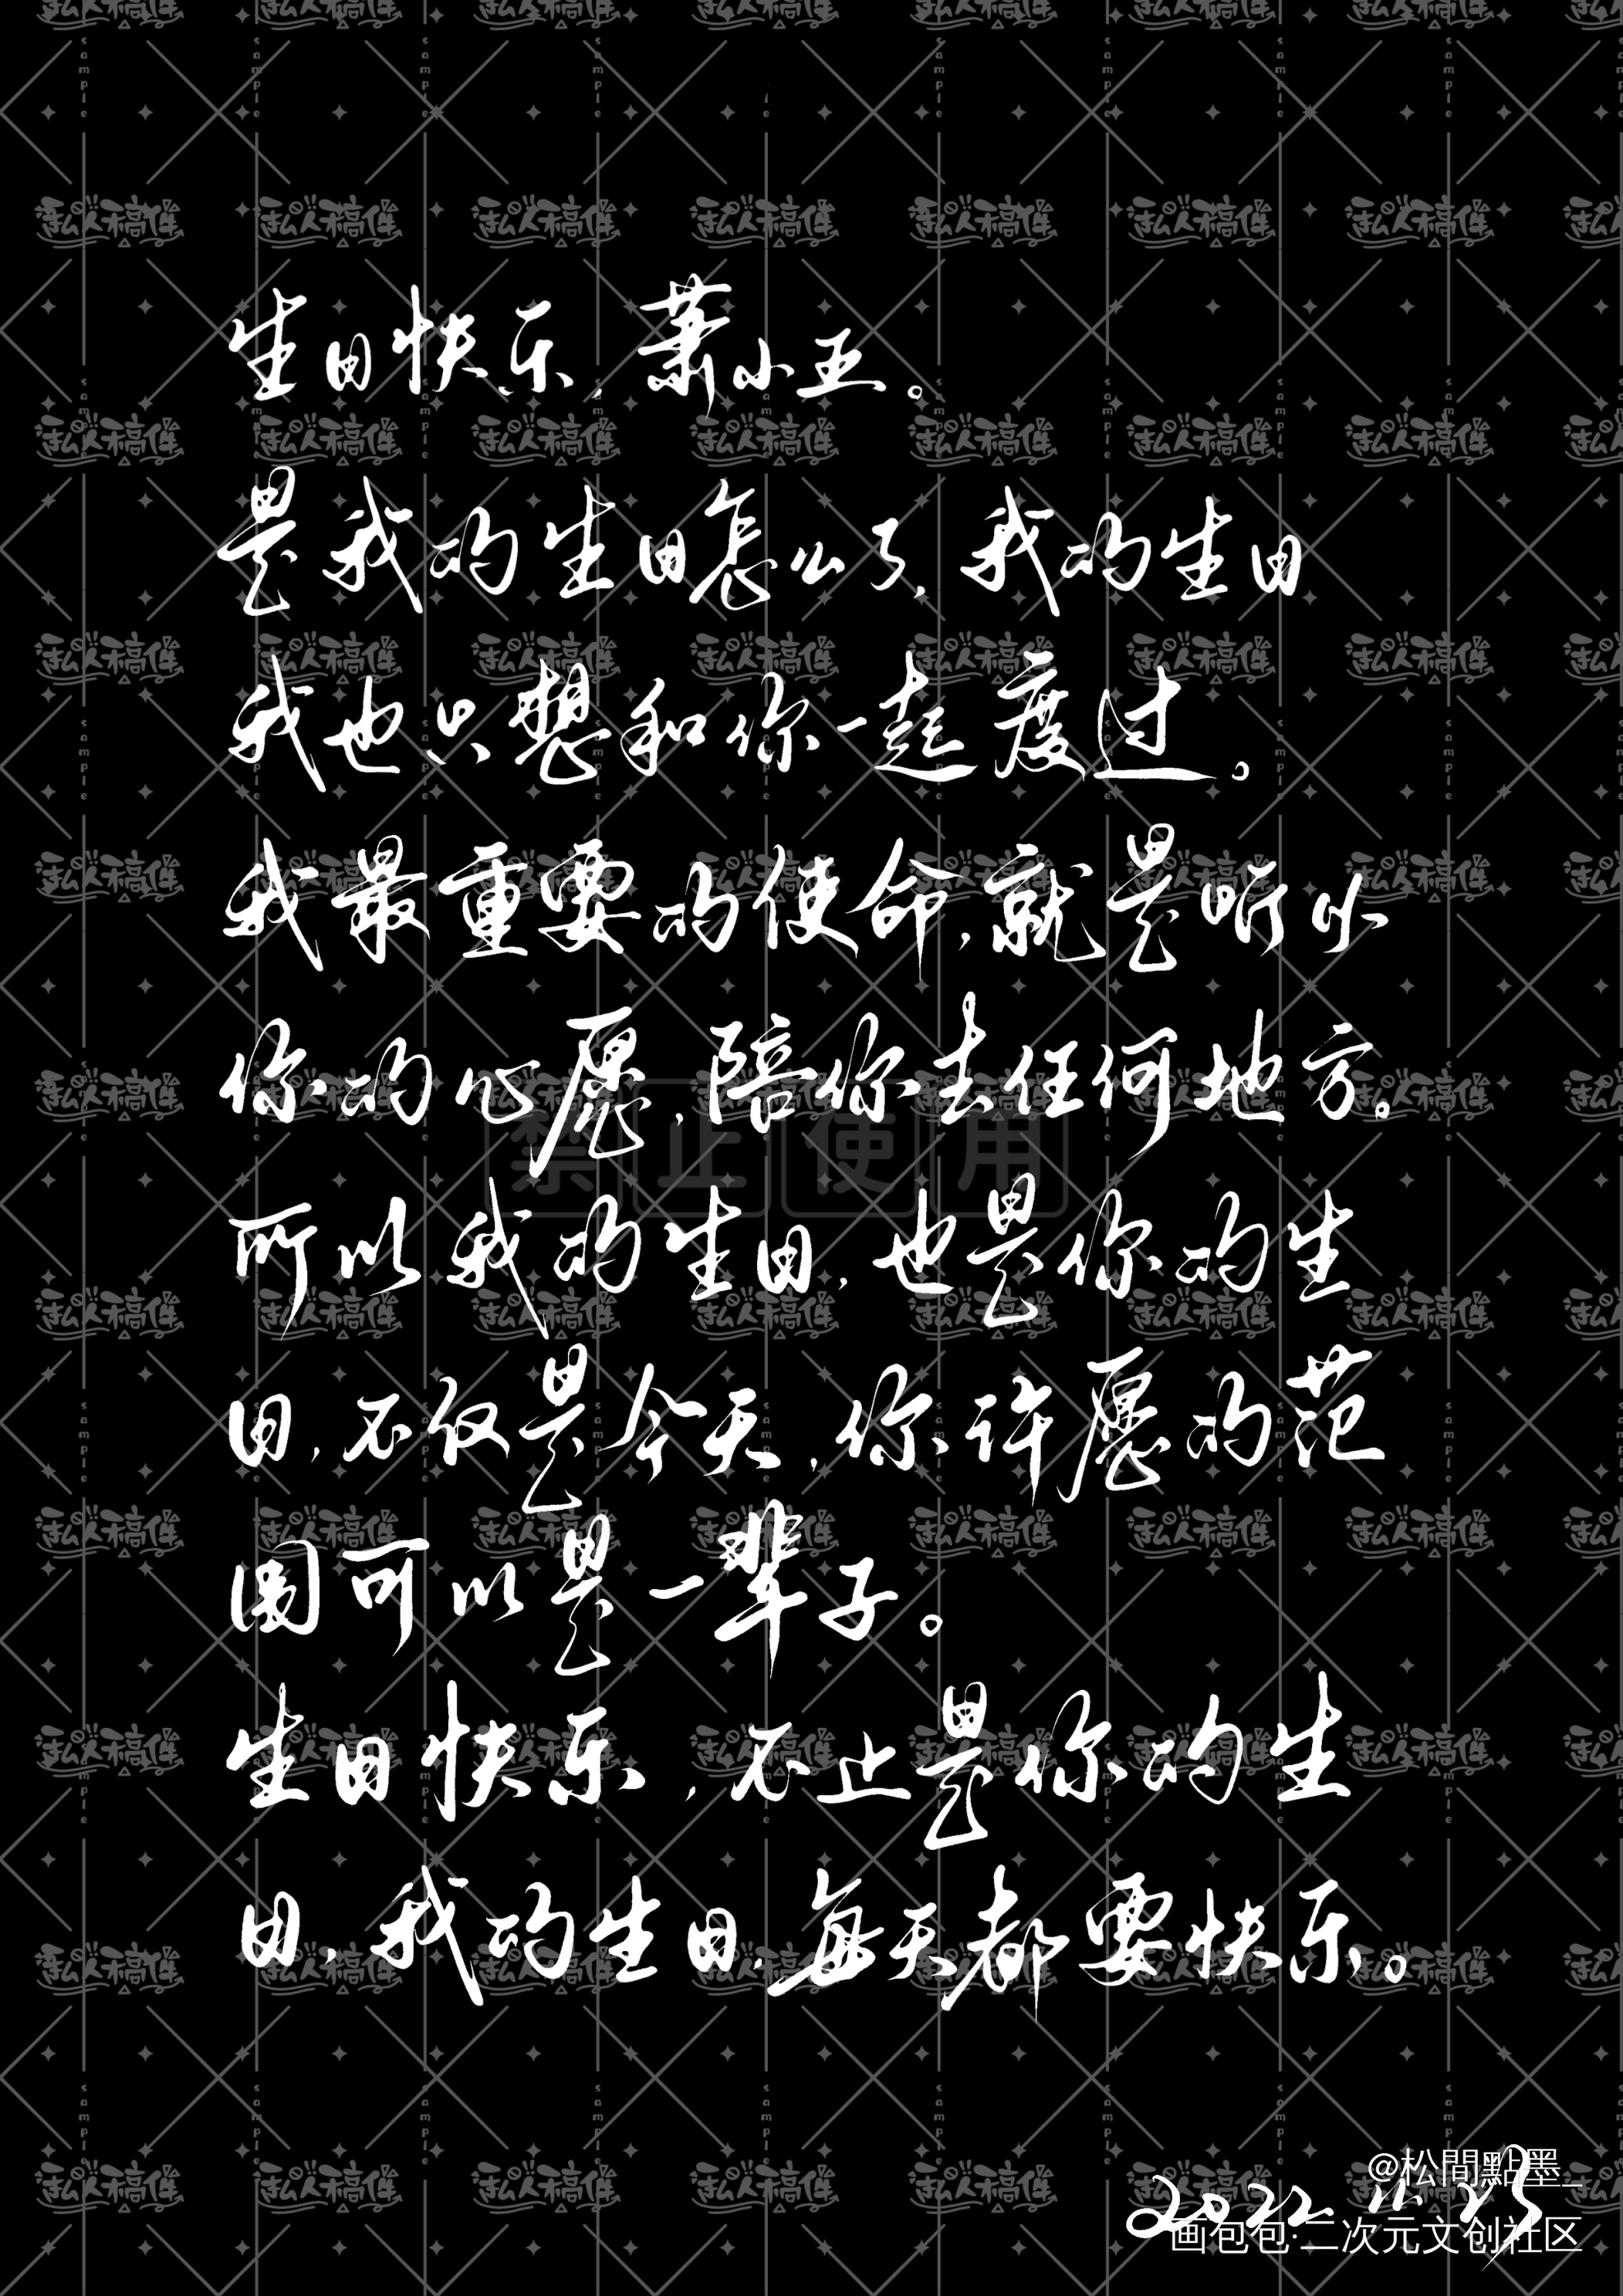 生日快乐，萧小五。
是我的生日怎么了，我的生日
我也只想和你一起度过。
我最重要的使命，就是听从
你的心愿，陪你去任何地方。
所以我的生日，也是你的生
日，不仅是今天，你许愿的范
围可以是一辈子。
生日快乐，不止是你的生
日，我的生日，每天都要快乐。
禁止使用
@松間點墨_
2022
画包包·二次元文创社区